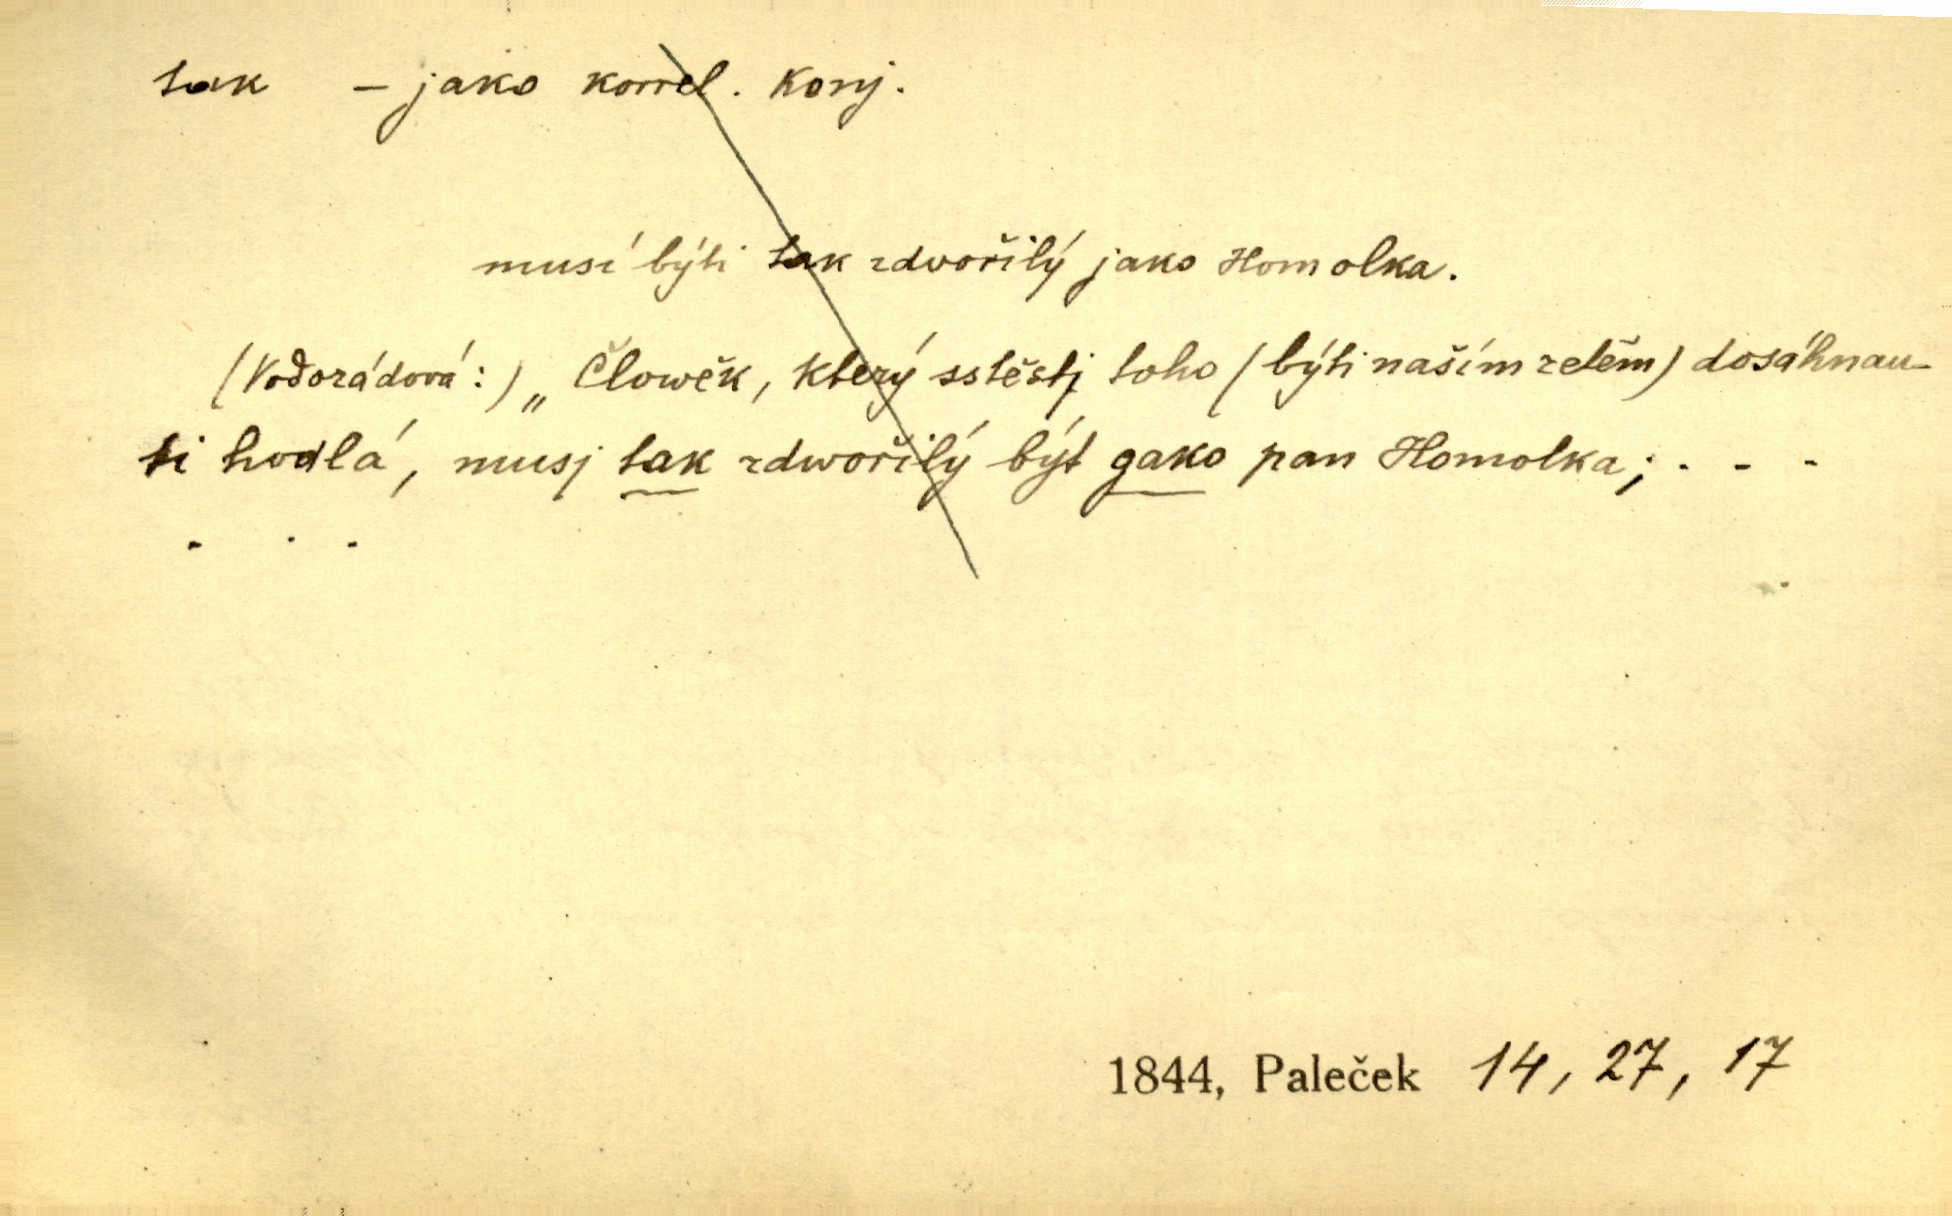 tak – jako korrel. konj.
musí býti tak zdvořilý jako Homolka.
(Voďorádová:) „Člověk, který sstěstj toho (býti naším zetěm) dosáhnau-
ti hodlá, musj tak zdwořilý být gako pan Homolka; . - -
. . .
1844, Paleček 14, 27, 17